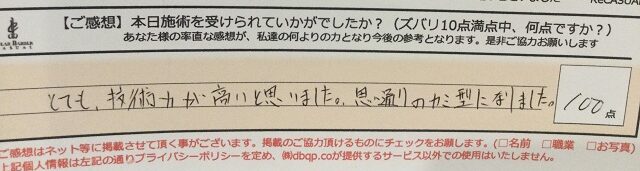 【ご感想】本日施術を受けられていかがでしたか？（ズバリ10点満点中、何点ですか？）
あなた様の率直な感想が、私達の何よりの力となり今後の参考となります。是非ご協力お願いします
とても、技術力が高いと思いました。思い通りのカミ型になりました。
100点
ご感想はネット等に掲載させて頂く事がございます。掲載のご協力頂けるものにチェックをお願します。（□名前　□職業　□お写真）
上記個人情報は左記の通りプライバシーポリシーを定め、㈱dbqp.coが提供するサービス以外での使用はいたしません。